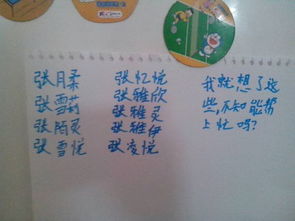 张月柔
张雪莉
张陌灵
张雪悦
张忆悦
张雅欣
张雅灵
张雅伊
张凌悦
我就想了这
些,不知能帮
上忙吗?